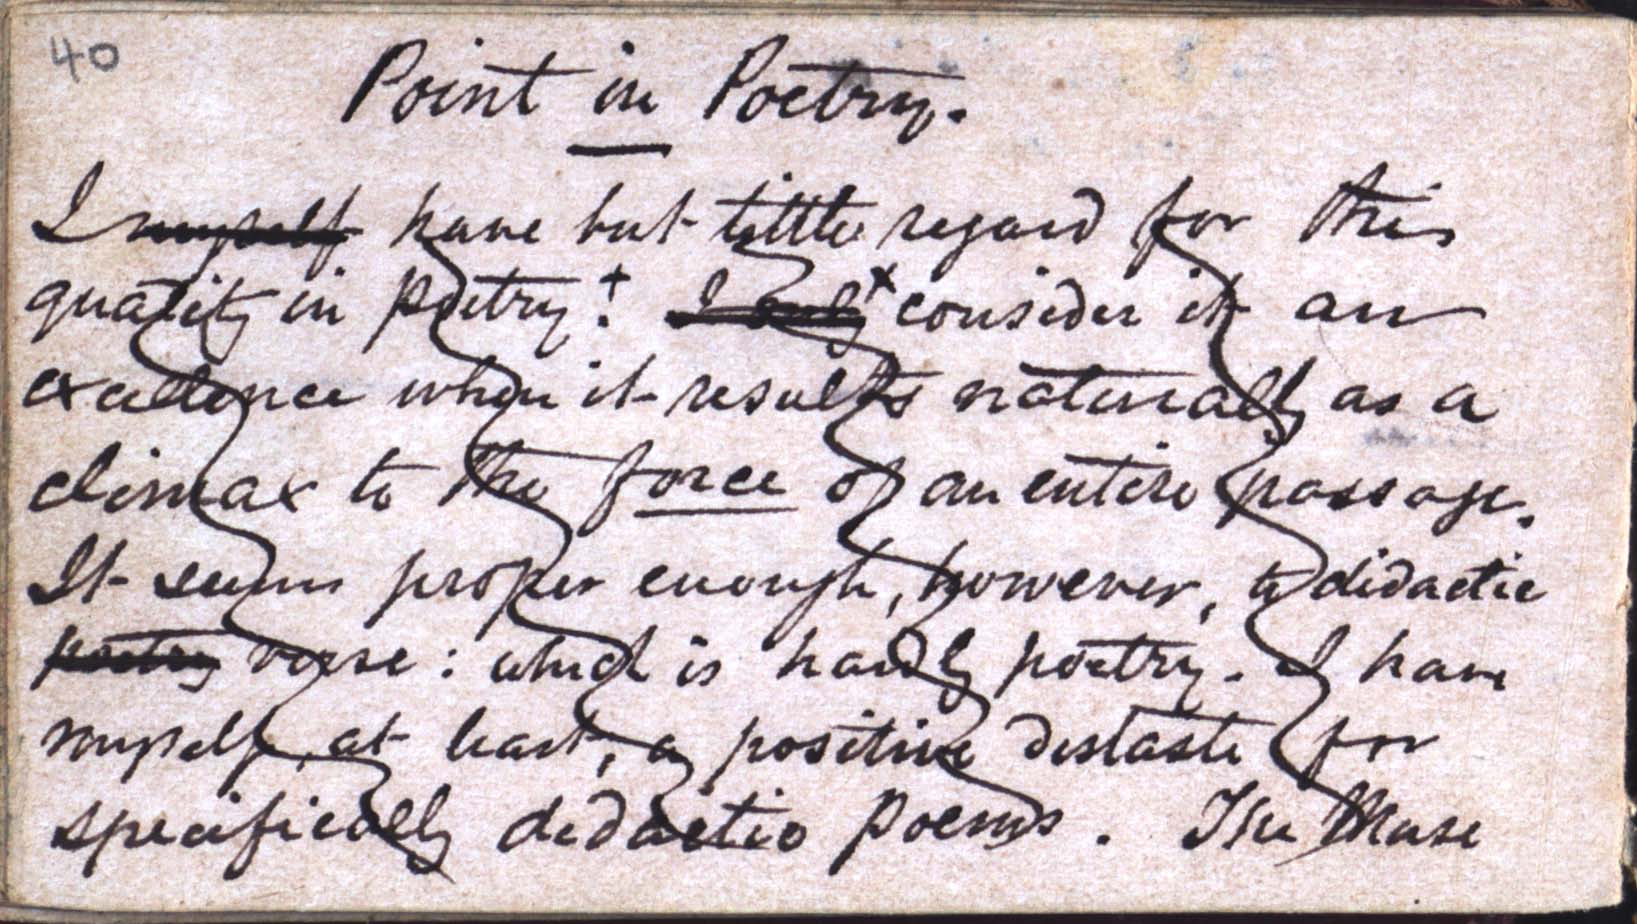 40
Point in Poetry.
I myself have but little regard for this
quality in poetry. + I only x consider it an
excellence when it results naturally as a
climax to the force of an entire passage.
It seems proper enough, however, to didactic
poetry verse: which is hardly poetry. I have
myself, at least, a positive distaste for
specifically didactic poems. The Muse